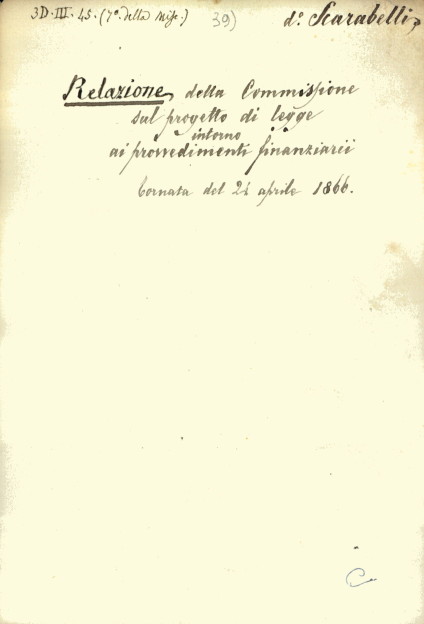 3D.III.45.(7ª. della Misc.) 39) d°. Scarabelli
Relazione della Commissione
sul progetto di legge
intorno
ai provvedimenti finanziarii
Tornata del 21 aprile 1866.